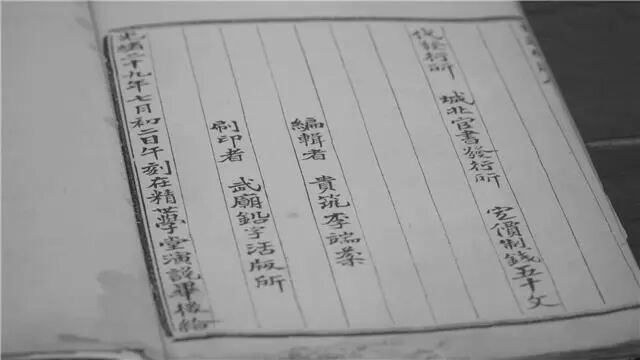 代發行所 城北官書發行所 定價制錢五十文
編輯者 貴筑李端棻
刷印者 武廟鉛字活版所
光緒二十九年七月初二日午刻在精學堂演説畢